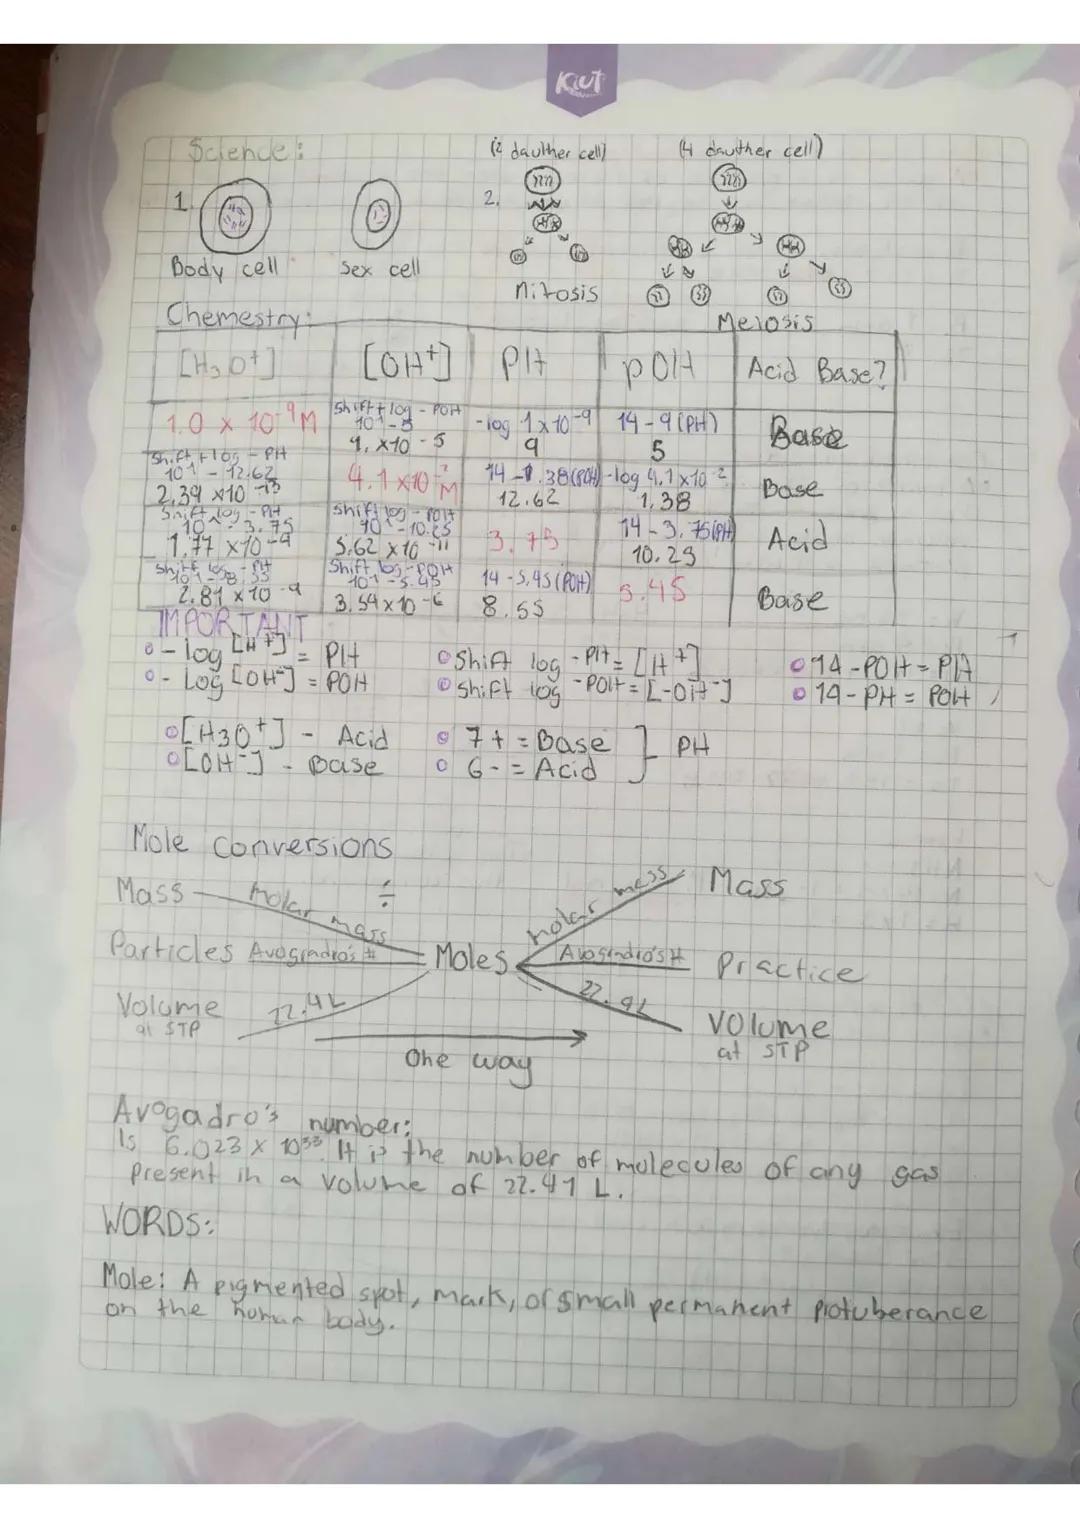 Kiut
Science:
(2 dauther cell)
(4 dauther cell)
1.
2.
Body cell
Sex cell
Mitosis
Meiosis
Chemestry:
[H3O+] [OH+] PH pOH Acid Base?
1.0 x 10-9 M
Shift + log - POH
10^-1 - 5
1. x10 -5
-log 1x10-9
9
14 - 9 (PH)
5
Base
Shift + log - PH
10^-1 - 12.62
2.39 x10 -13
4.1 x10-2 M
14 - 1.38 (POH)
12.62
-log 4.1x10-2
1.38
Base
Shift log - PH
10^-1 - 3.75
1.77 x10-9
Shift log - POH
10^-1 - 10.25
5.62 x10 -11
3.75
14 - 3.75 (PH)
10.25
Acid
Shift log - PH
10^-1 - 8.55
2.81 x10 -9
Shift log - POH
10^-1 - 5.45
3.54x10-6
14 - 5.45 (POH)
8.55
5.45
Base
IMPORTANT
- log [H+] = PH
Shift log -PH = [H+]
14 - POH = PH
- Log [OH-] = POH
Shift log -POH = [-OH-]
14 - PH = POH
[H3O+] - Acid
7+ = Base
PH
[OH-] - Base
6- = Acid
Mole conversions
Mass Molar mass ÷
molar mass Mass
Particles Avogradro's # Moles Avogradro's # Practice
Volume at STP 22.4L
22.4L Volume at STP
One way
Avogadro's number:
Is 6.023 x 10^33. It is the number of molecules of any gas
present in a volume of 22.41 L.
WORDS:
Mole: A pigmented spot, mark, or small permanent protuberance
on the human body.